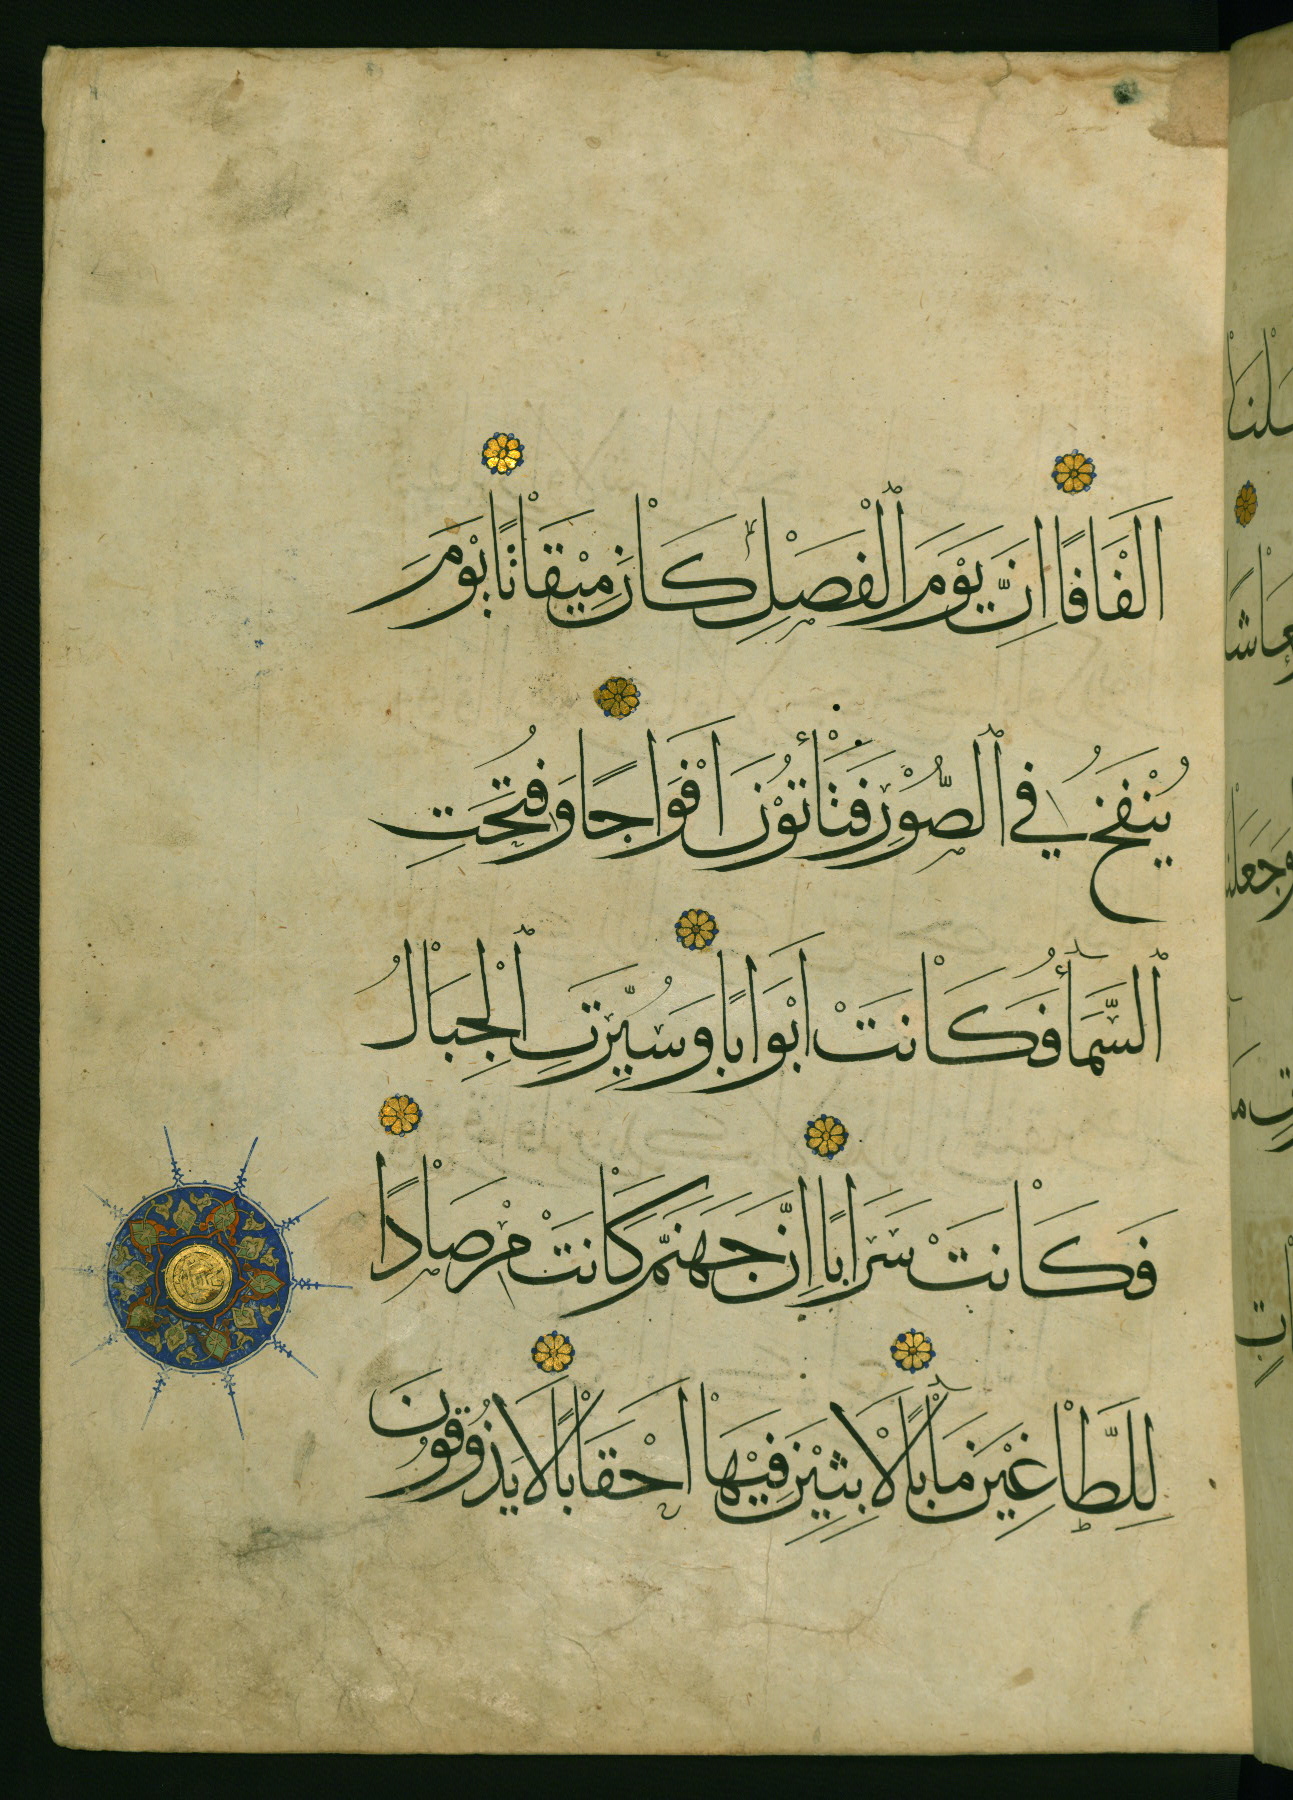 اَلْفَافًا اِنَّ يَوْمَ ٱلْفَصْلِ كَانَ مِيْقَاتًا يَوْمَ
يُنْفَخُ فِي ٱلصُّوْرِ فَتَأْتُوْنَ اَفْوَاجًا وَفُتِحَتِ
ٱلسَّمَآءُ فَكَانَتْ اَبْوَابًا وَسُيِّرَتِ ٱلْجِبَالُ
فَكَانَتْ سَرَابًا اِنَّ جَهَنَّمَ كَانَتْ مِرْصَادًا
لِلطَّاغِيْنَ مَآبًا لَابِثِيْنَ فِيْهَا اَحْقَابًا لَا يَذُوْقُوْنَ